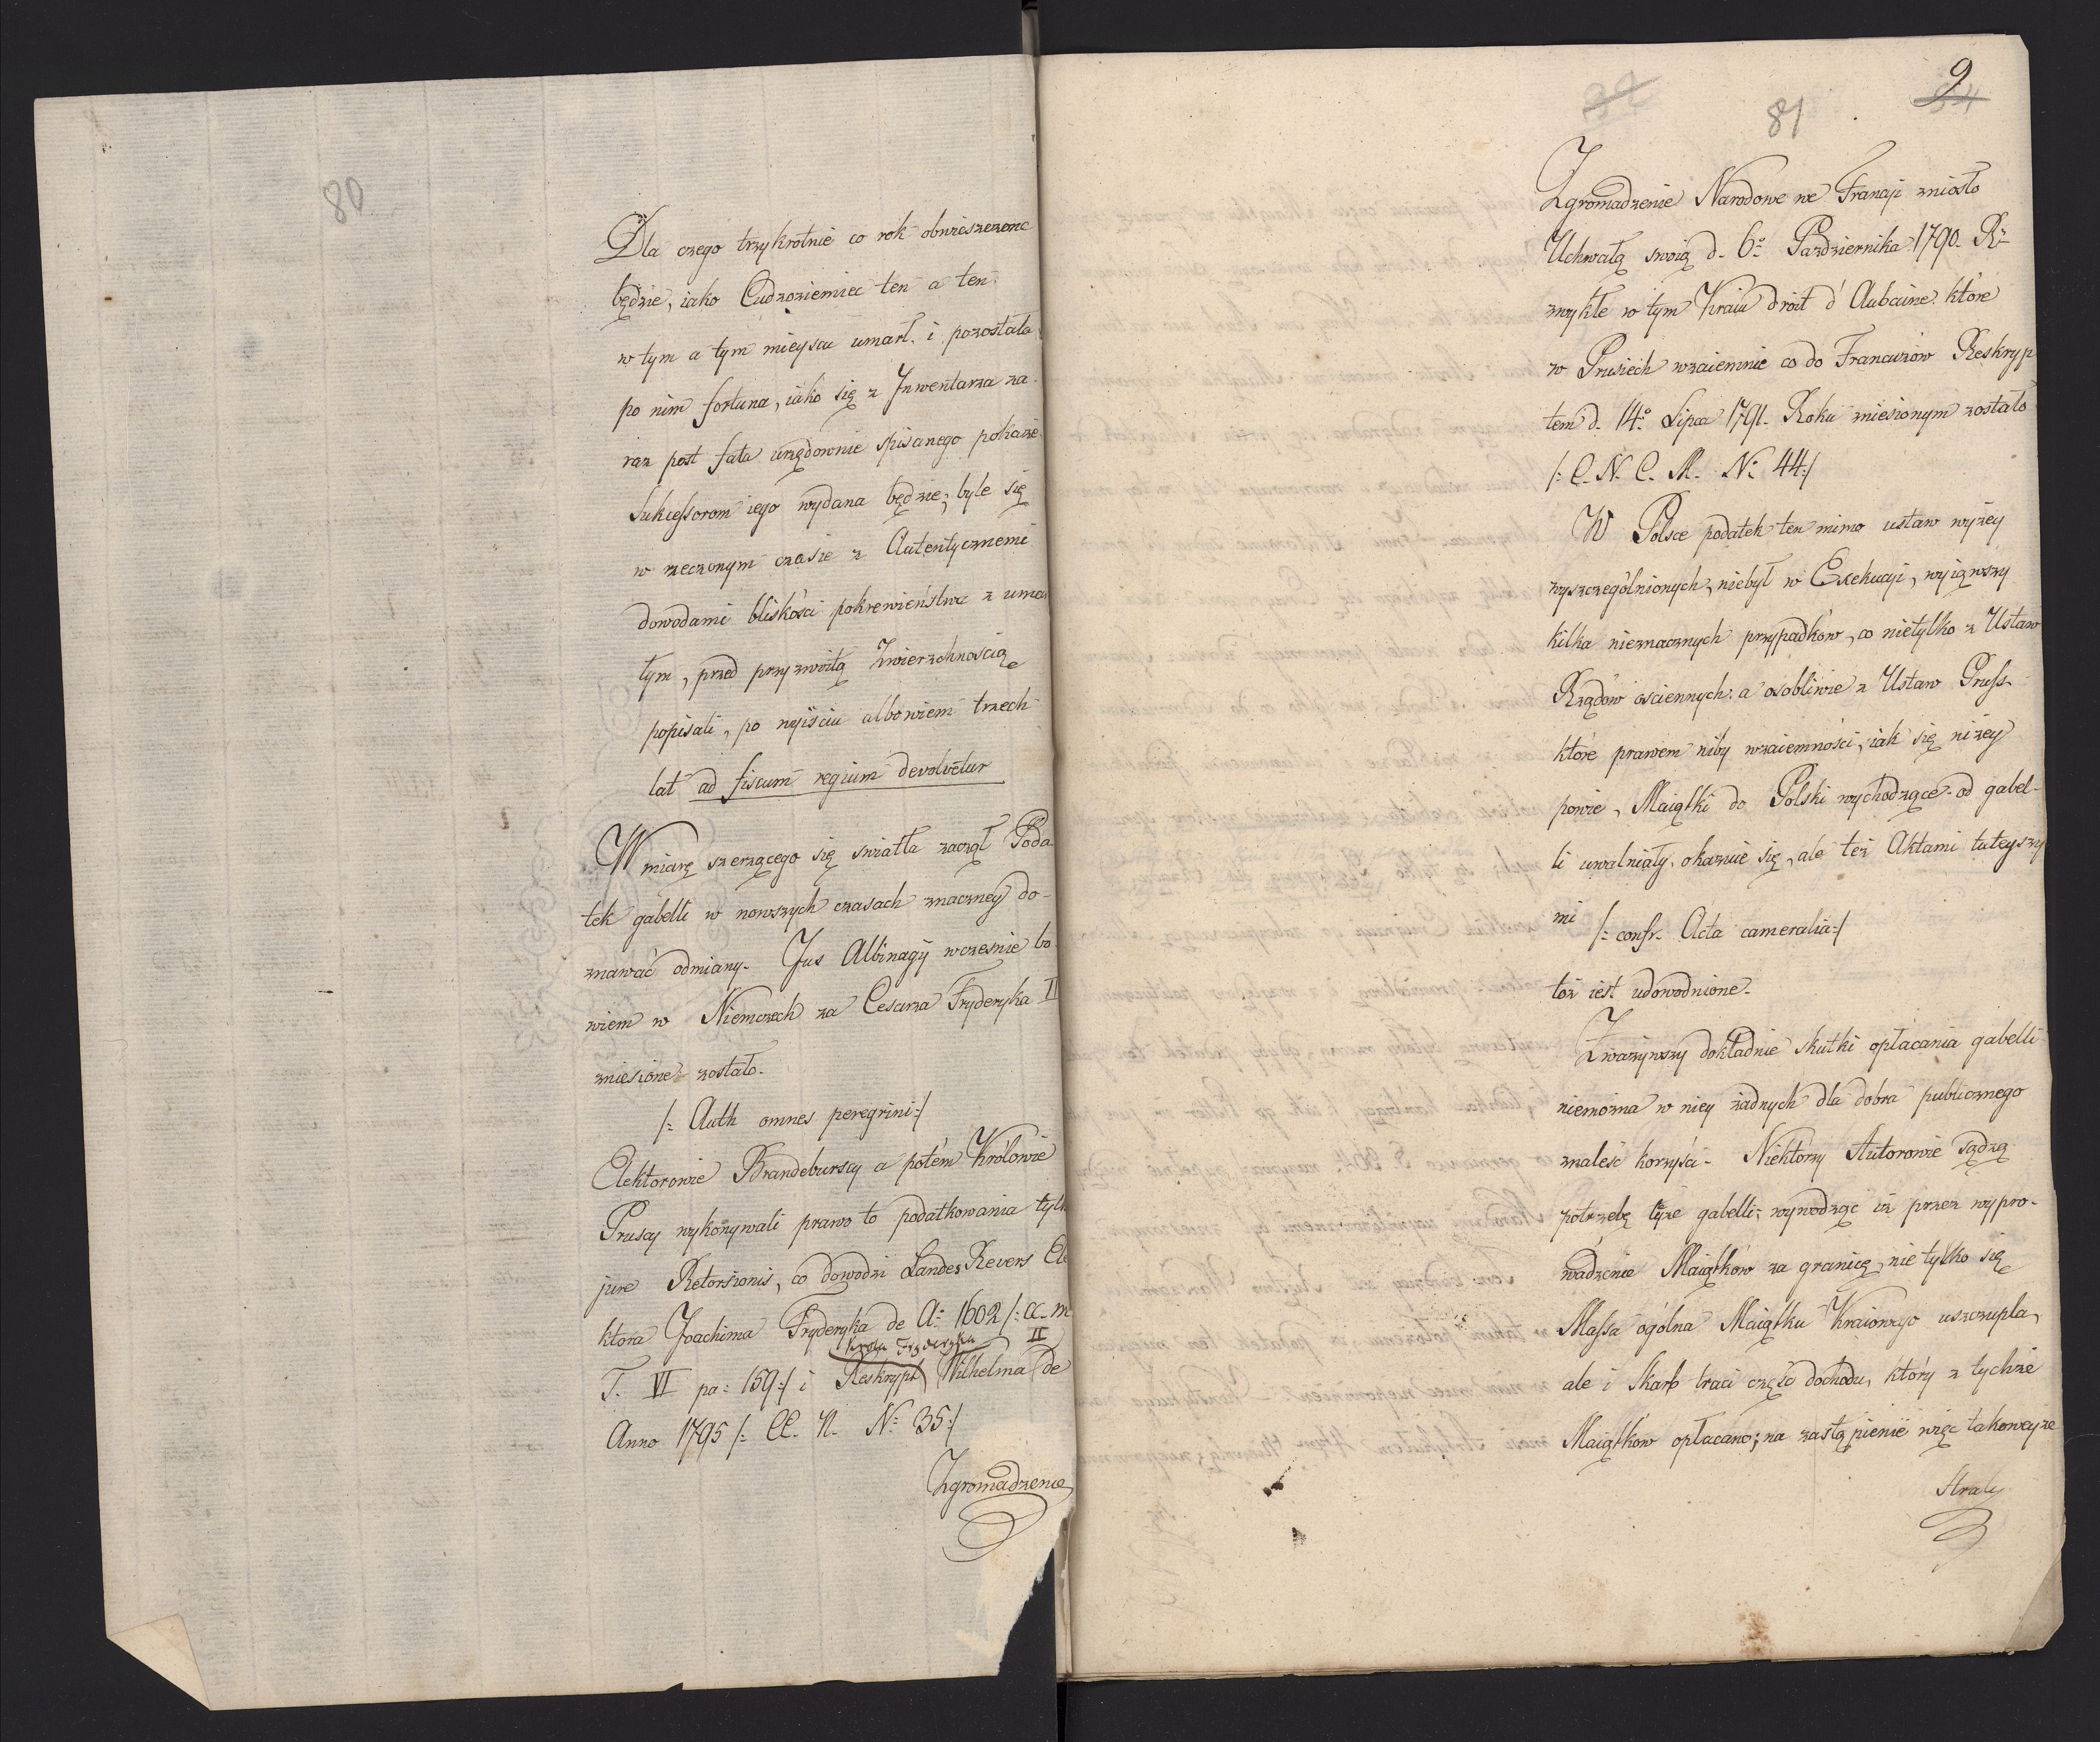 80
Dla czego trzykrotnie co rok obwieszczone
będzie, iako Cudzoziemiec ten a ten
w tym a tym mieyscu umarł. i pozostała
po nim fortuna, iako się z Inwentarza za-
raz post fata urzędownie spisanego pokaże
Sukcessorom iego wydana będzie, byle się
w rzeczonym czasie z Autentycznemi
dowodami bliskości pokrewieństwa z umar
łym, przed przyzwoitą Zwierzchnością
popisali, po wyiściu albowiem trzech
lat ad fiscum regium devolvetur
W miarę szerzącego się swiatła zaczął Poda
tek gabelli w nowszych czasach znaczney do-
znawać odmiany. Jus Albinagij wczesnie bo-
wiem w Niemczech za Cesarza Fryderyka II
zniesione zostało.
/: Auth omnes peregrini :/
Elektorowie Brandeburscy a potém Królowie
Pruscy wykonywali prawo to podatkowania tylk
jure Retorsionis, co dowodzi Landes Revers Ele
ktora Joachima Fryderyka de Aº 1602 /: C. M
Króla Fryderyka II
T. VI pa: 159 :/ i Reskrypt Wilhelma de
Anno 1795 /: CC. N. Nº 35 :/
Zgromadzenie
9
81
Zgromadzenie Narodowe we Francji zniosło
Uchwałą swoią d. 6º Pazdziernika 1790. Rº
zwykłe w tym Kraiu droit d'Aubaine. które
w Prusiech wzaiemnie co do Francuzów Reskryp
tem d. 14º Lipca 1791. Roku zniesionym zostało
/: C. N. C. M. Nº 44 :/
W Polsce podatek ten mimo ustaw wyżey
wyszczególnionych, niebył w Exekucyi, wyiąwszy
kilka nieznacznych przypadków, co nietylko z Ustaw
Rządów ościennych. a osobliwie z Ustaw Prufs.
które prawem niby wzaiemności, iak się niżey
powie, Maiątki do Polski wychodzące od gabel-
li uwalniały, okazuie się, ale też Aktami tuteyszy
mi /: confr. Acta cameralia :/
toż iest udowodnione.
Zważywszy dokładnie skutki opłacania gabelli
niemożna w niey żadnych dla dobra publicznego
znaleść korzyści. Niektórzy Autorowie sądzą
potrzebę teyże gabelli; wywodząc iż przez wypro-
wadzenie Maiątków za granicę, nie tylko się
Mafsa ogólna Maiątku Kraiowego uszczupla,
ale i Skarb traci część dochodu, który z tychże
Maiątków opłacano; na zastąpienie więc takoweyże
Straty